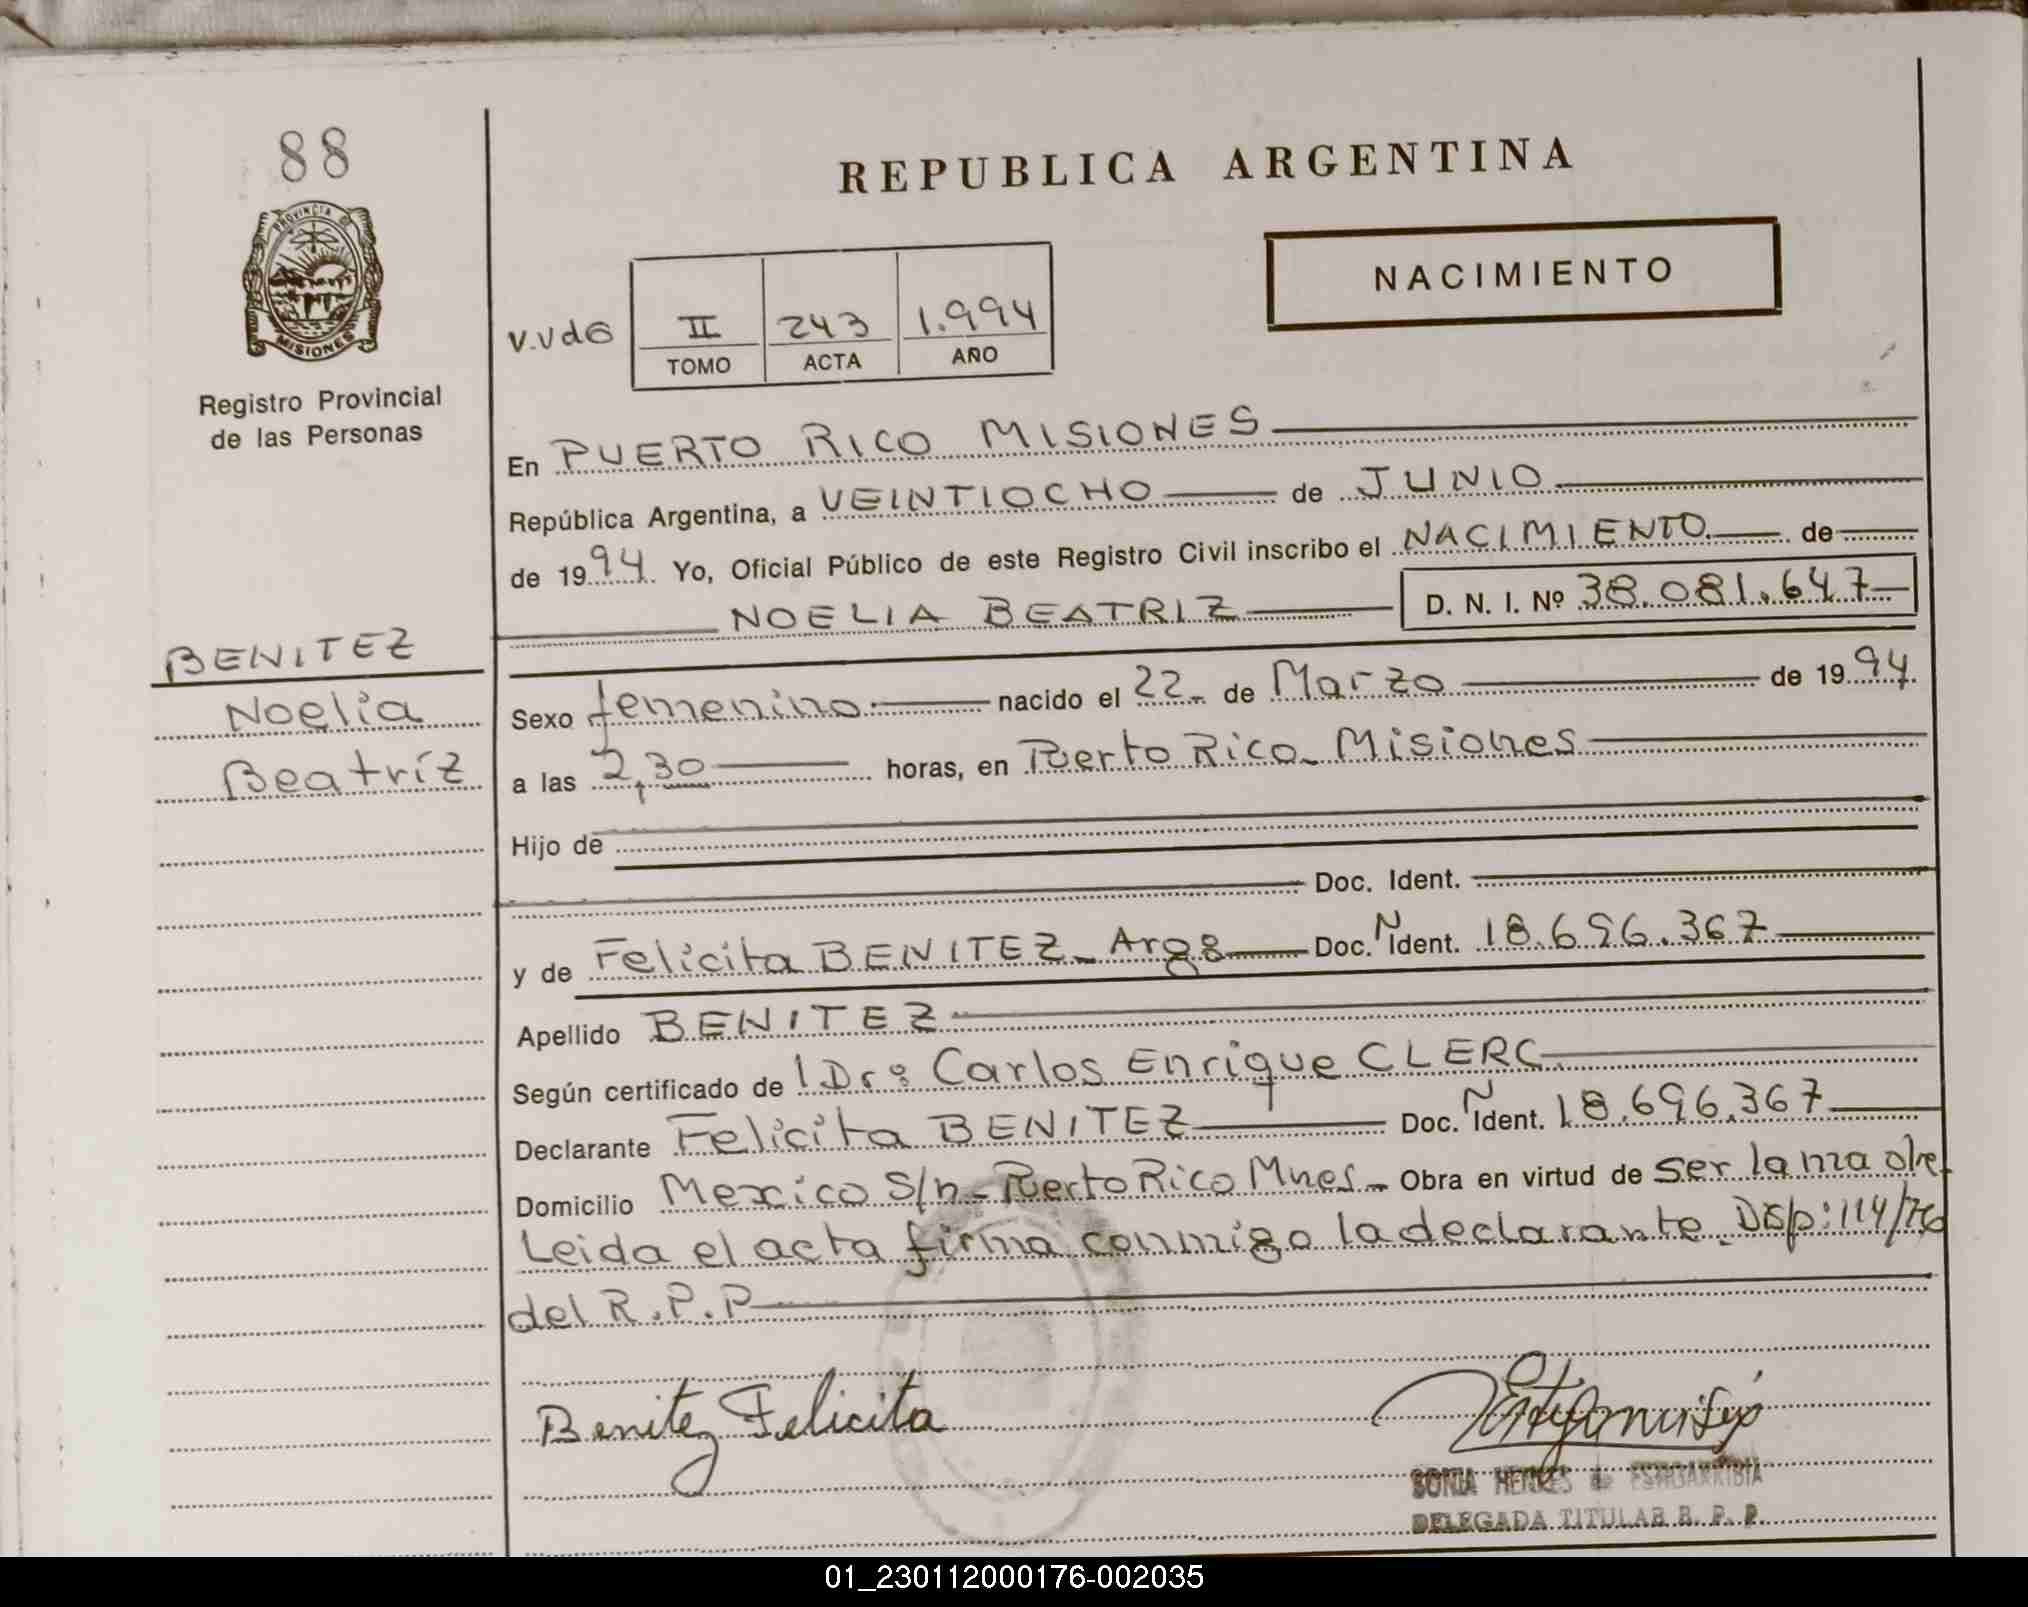 88
REPUBLICA ARGENTINA
PROVINCIA DE
MISIONES
Registro Provincial
de las Personas
NACIMIENTO
II 243 1.994
TOMO ACTA AÑO
En PUERTO RICO MISIONES
República Argentina, a VEINTIOCHO de JUNIO
de 1994. Yo, Oficial Público de este Registro Civil inscribo el NACIMIENTO de
NOELIA BEATRIZ D. N. I. Nº 38.081.647
BENITEZ
Noelia
Beatriz
Sexo femenino nacido el 22 de Marzo de 1994
a las 2,30 horas, en Puerto Rico - Misiones
Hijo de
Doc. Ident.
y de Felicita BENITEZ - Arg. Doc. N Ident. 18.696.367
Apellido BENITEZ
Según certificado de Dr: Carlos Enrique CLERC
Declarante Felicita BENITEZ Doc. N Ident. 18.696.367
Domicilio Mexico S/n - Puerto Rico Mnes - Obra en virtud de ser la madre
Leida el acta firma conmigo la declarante. Disp: 114/76
del R.P.P
Benitez Felicita
SONIA HENKES de ESTIGARRIBIA
DELEGADA TITULAR R. P. P.
01_230112000176-002035